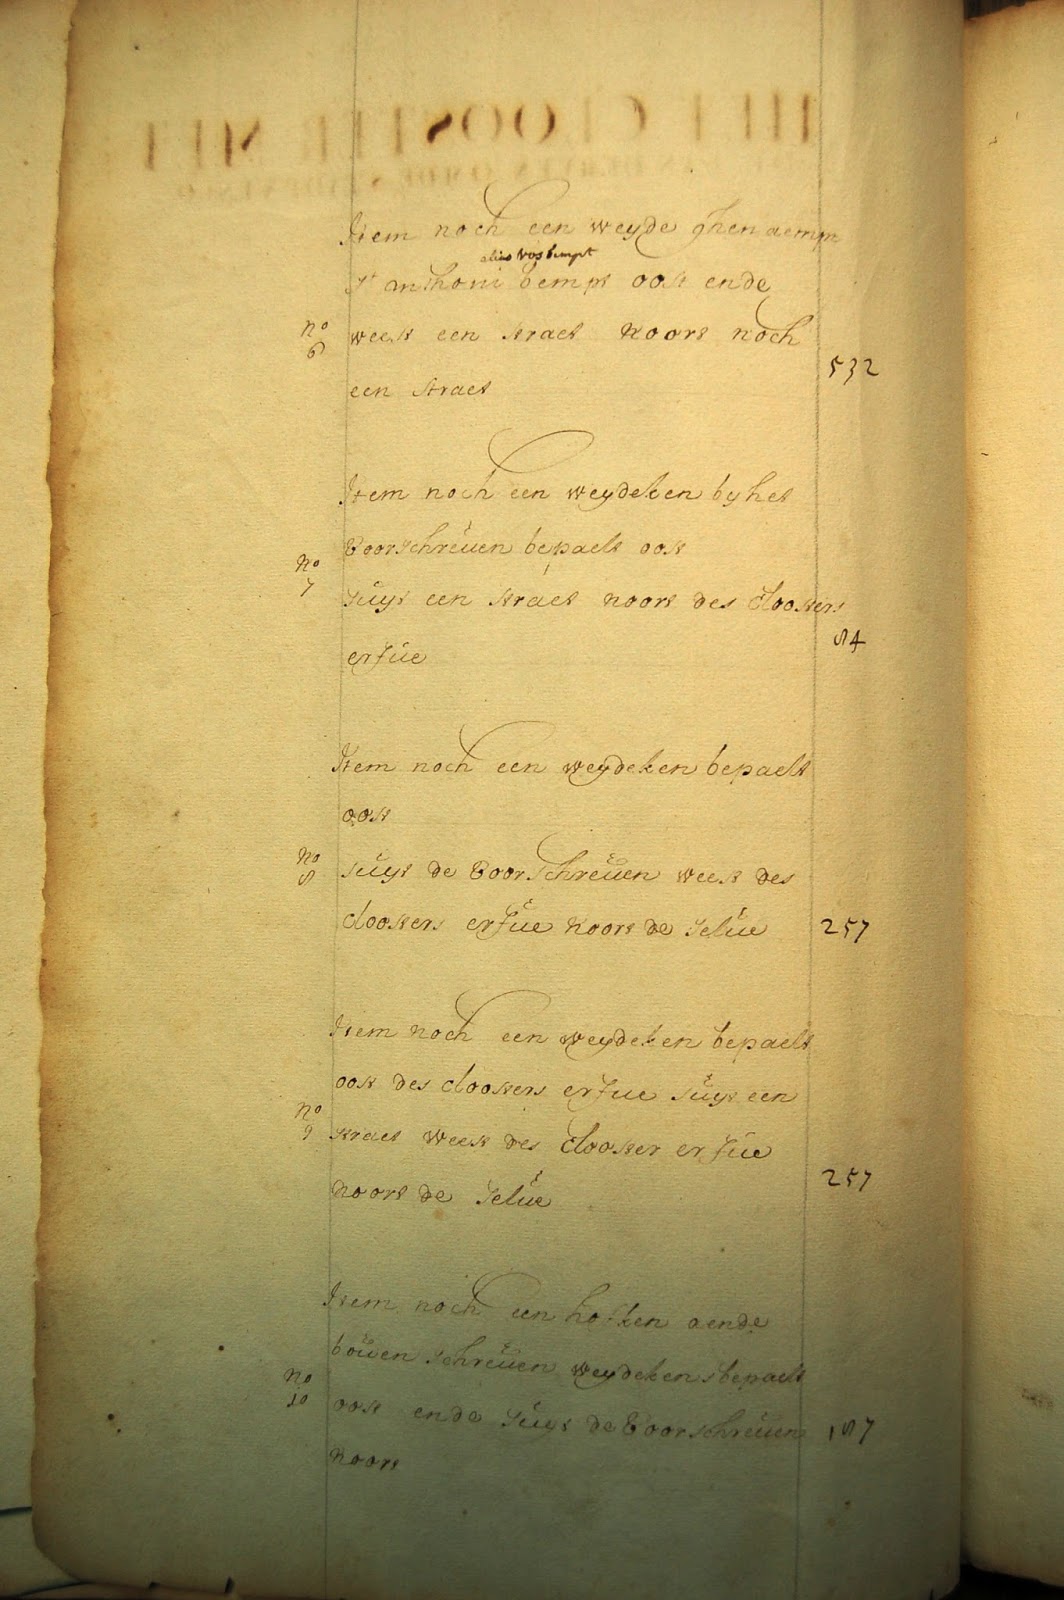 Item noch een weyde ghenaempt
alias vos bempt
St anthoni bempt oost ende
No 6 west een straet noort noch
een straet 532
Item noch een weydeken by het
voorschreuen bepaelt oost
No 7
suyt een straet noort des cloosters
erfue 84
Item noch een weydeken bepaelt
oost
No 8 suyt de voorschreuen west des
cloosters erfue noort de selue 257
Item noch een weydeken bepaelt
oost des cloosters erfue suyt een
No 9 straet west des clooster erfue
noort de selue 257
Item noch een hofken aende
bouen schreuen weydekens bepaelt
No 10 oost ende suyt de voorschreuen 187
noort